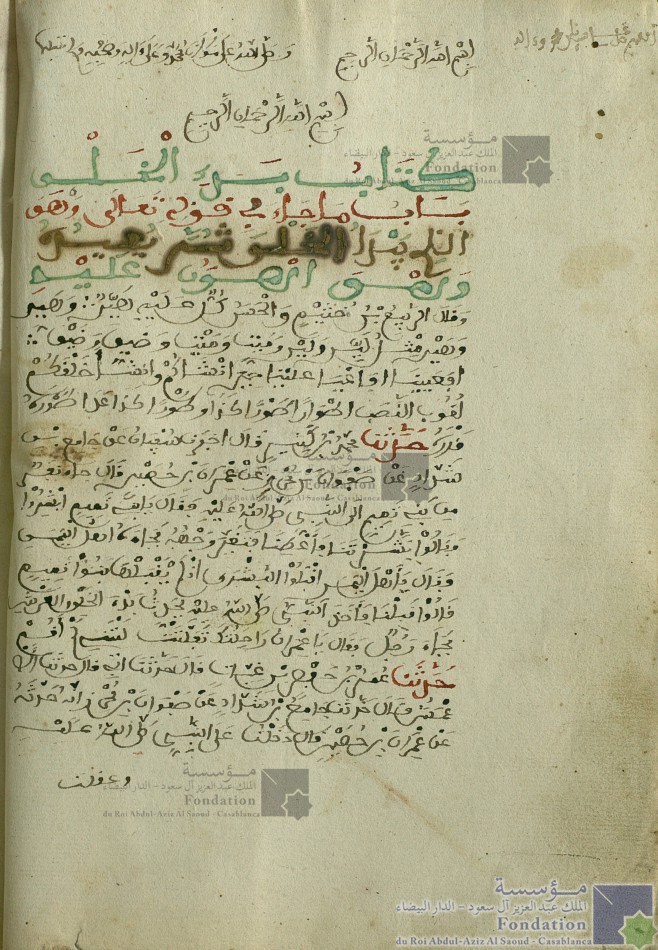 بسم الله الرحمن الرحيم وصلى الله على سيدنا محمد وعلى اله وصحبه
بسم الله الرحمن الرحيم
كتاب بدء الخلق
باب ما جاء في قوله تعالى وهو
الذي يبدأ الخلق ثم يعيده
وهو اهون عليه
وقال الربيع بن خثيم والحسن كل عليه هين وهين
وهين مثل لين ولين وميت وميت وضيق وضيق
افعيينا افاعيا علينا حين انشاكم وانشا خلقكم
لغوب النصب اطوارا طورا كذا وطورا كذا عدا طوره
قدره حدثنا محمد بن كثير قال اخبرنا سفيان عن جامع بن
شداد عن صفوان بن محرز عن عمران بن حصين قال جاء نفر
من بني تميم الى النبي صلى الله عليه فقال يا بني تميم ابشروا
فقالوا بشرتنا فاعطنا فتغير وجهه فجاءه اهل اليمن
فقال يا اهل اليمن اقبلوا البشرى اذ لم يقبلها بنو تميم
قالوا قبلنا فاخذ النبي صلى الله عليه يحدث بدء الخلق والعرش
فجاء رجل فقال يا عمران راحلتك تفلتت ليتني لم اقم
حدثنا عمر بن حفص بن غياث قال حدثنا ابي قال حدثنا الا
عمش قال حدثنا جامع بن شداد عن صفوان بن محرز انه حدثه
عن عمران بن حصين قال دخلت على النبي صلى الله عليه
وعقلت
مؤسسة
الملك عبد العزيز آل سعود - الدار البيضاء
Fondation
du Roi Abdul-Aziz Al Saoud - Casablanca